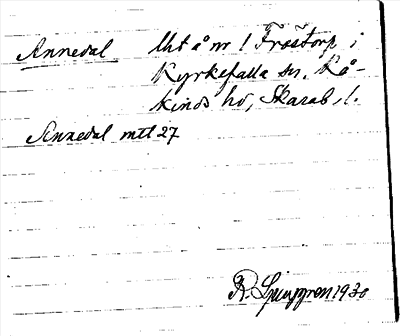 Annedal lht å nr 1 Frostorp i
Kyrkefalla sn, Kå-
kinds hd, Skarab. l.
Annedal mtl 27
R. Ljunggren 1930